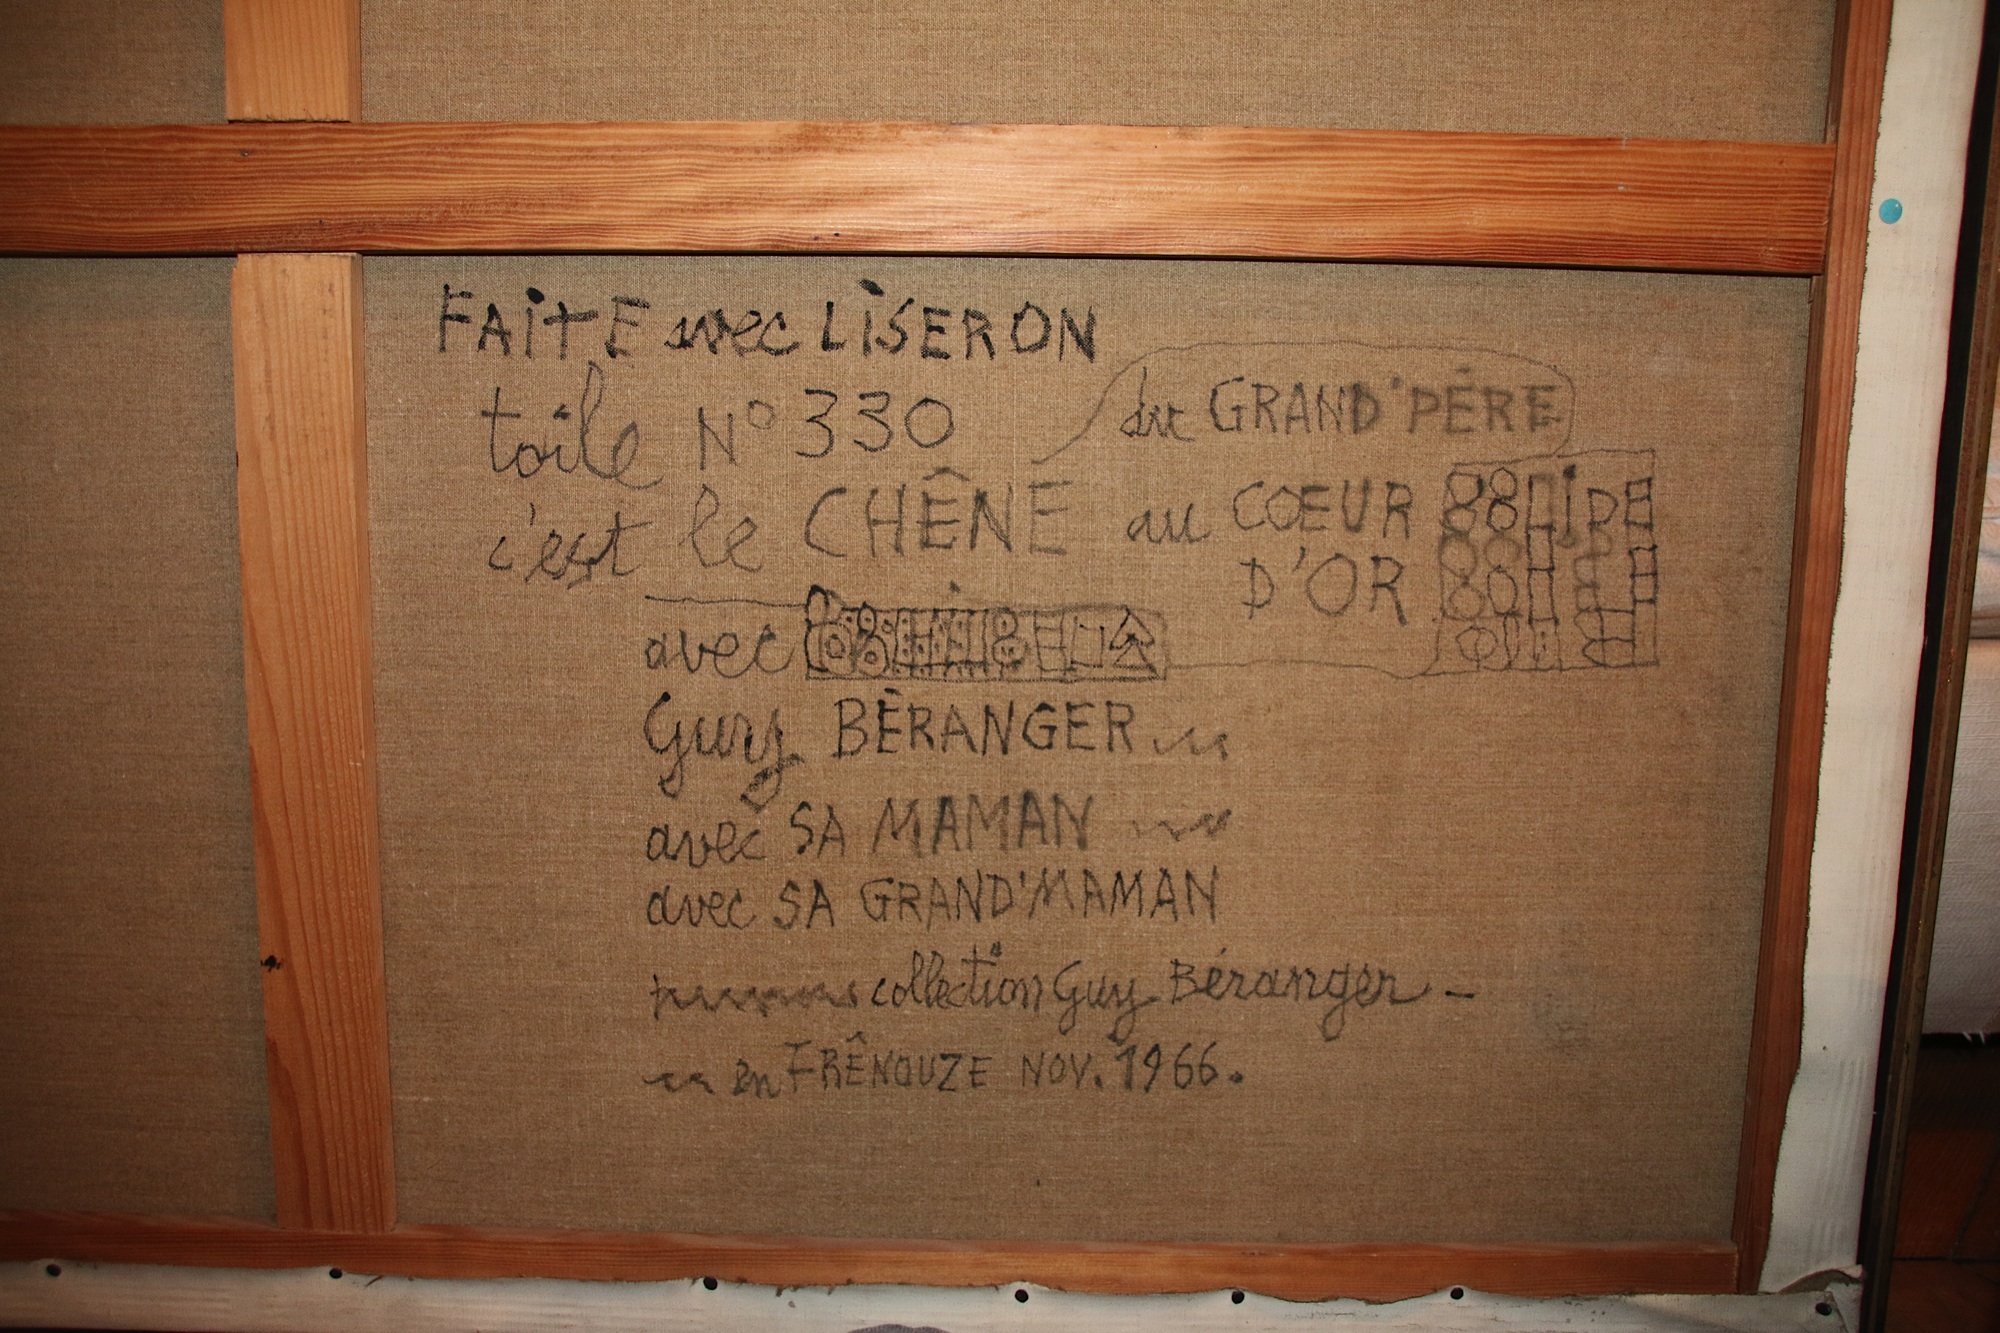 FAITE avec LISERON
toile N° 330
du GRAND'PÈRE
c'est le CHÊNE au COEUR
D'OR
avec
Guy BÉRANGER
avec SA MAMAN
avec SA GRAND'MAMAN
collection Guy Béranger -
en FRÊNOUZE NOV. 1966.